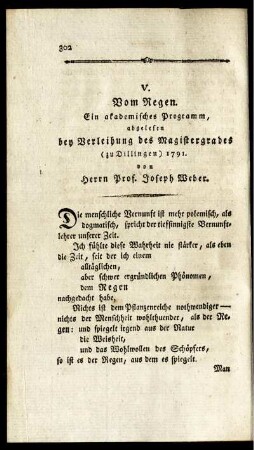 302
V.
Vom Regen.
Ein akademisches Programm,
abgelesen
bey Verleihung des Magistergrades
(zu Dillingen) 1791.
von
Herrn Prof. Joseph Weber.
Die menschliche Vernunft ist mehr polemisch, als
dogmatisch, spricht der tiefsinnigste Vernunft-
lehrer unserer Zeit.
Ich fühlte diese Wahrheit nie stärker, als eben
die Zeit, seit der ich einem
alltäglichen,
aber schwer ergründlichen Phänomen,
dem Regen
nachgedacht habe.
Nichts ist dem Pflanzenreiche nothwendiger —
nichts der Menschheit wohlthuender, als der Re-
gen: und spiegelt irgend aus der Natur
die Weisheit,
und das Wohlwollen des Schöpfers,
so ist es der Regen, aus dem es spiegelt.
Man